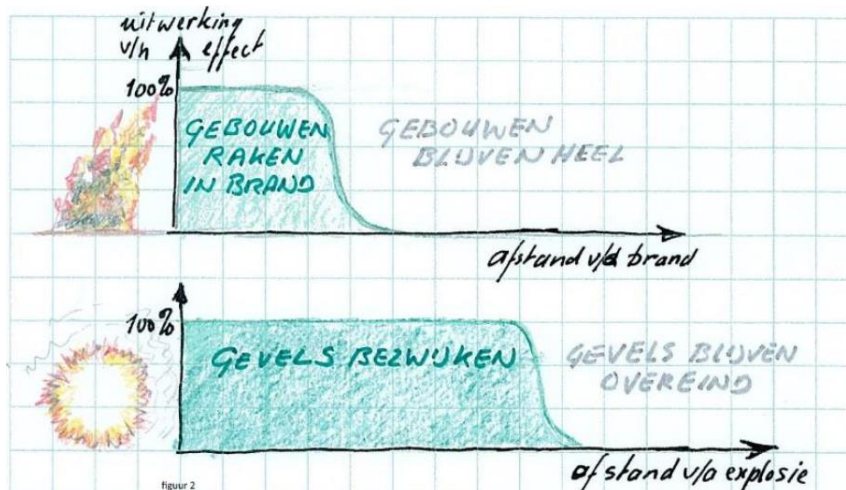 uitwerking
v/h effect
100%
GEBOUWEN
RAKEN
IN BRAND
GEBOUWEN
BLIJVEN HEEL
afstand v/d brand
100%
GEVELS BEZWIJKEN
GEVELS BLIJVEN
OVEREIND
afstand v/a explosie
figuur 2